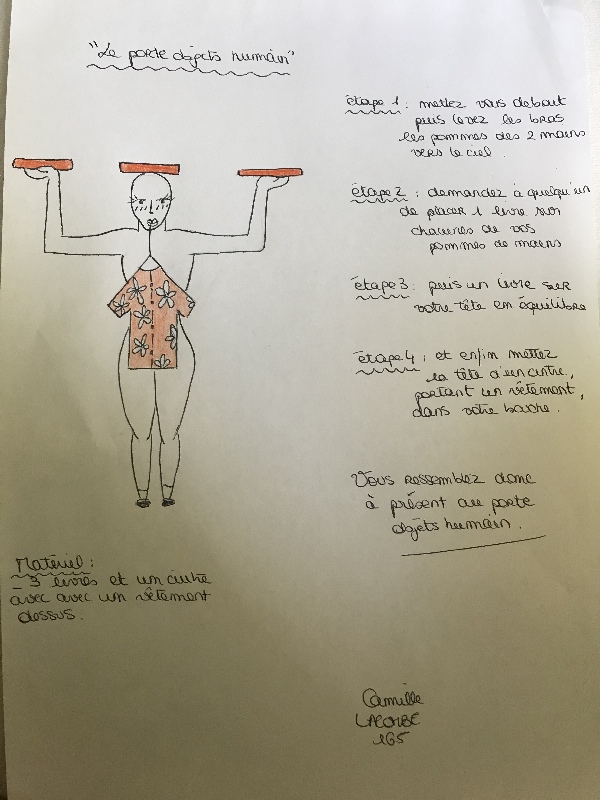 "Le porte objets humain"
étape 1 : mettez vous debout
puis levez les bras
les pommes des 2 mains
vers le ciel.
étape 2 : demandez à quelqu'un
de placer 1 livre sur
chacunes de vos
pommes de mains
étape 3 : puis un livre sur
votre tête en équilibre
étape 4 : et enfin mettez
la tête d'un cintre,
portant un vêtement,
dans votre bouche.
Vous ressemblez donc
à présent au porte
objets humain.
Matériel :
- 3 livres et un cintre
avec avec un vêtement
dessus.
Camille
165